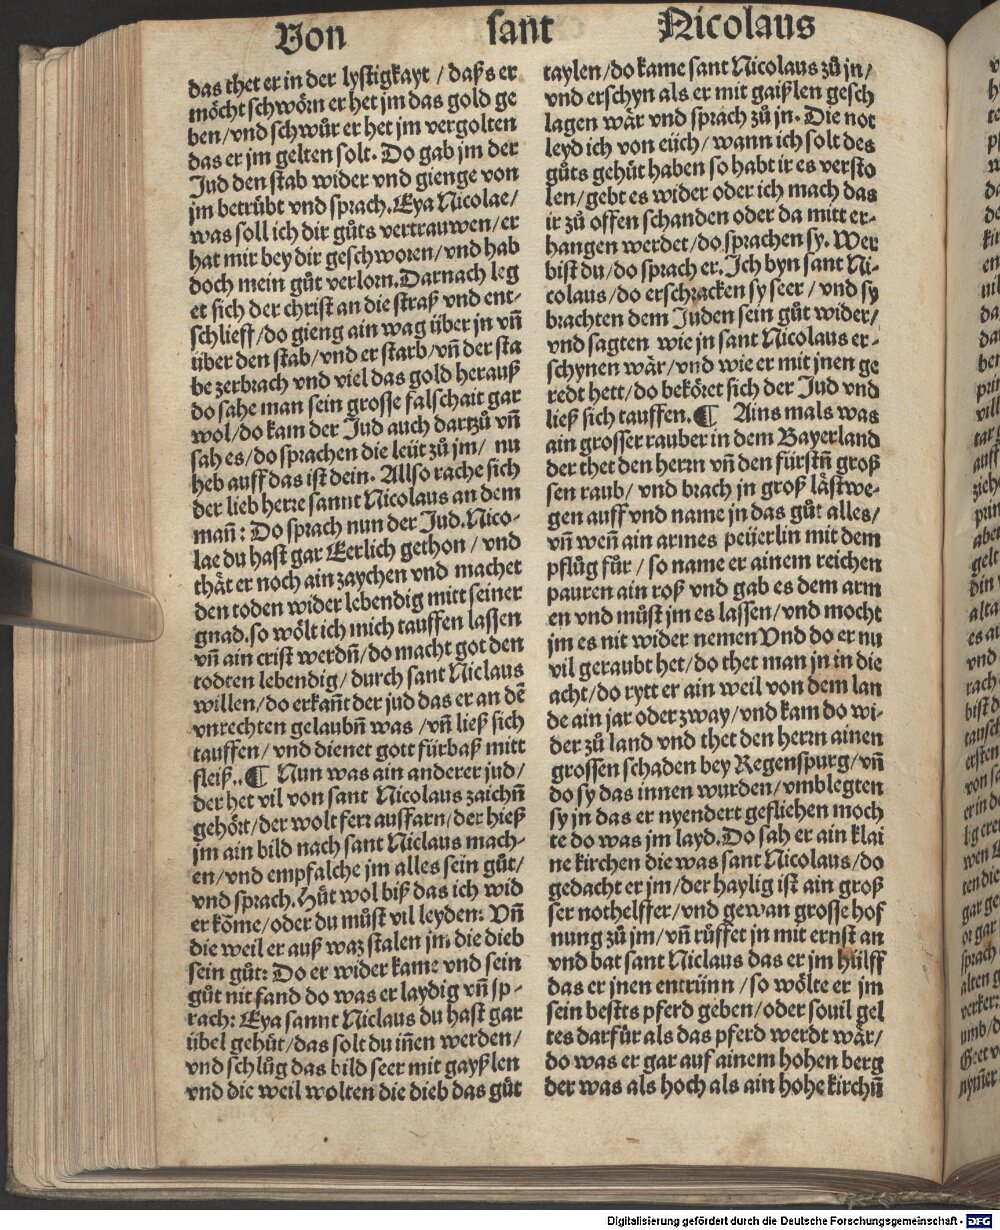 Von sant Nicolaus
das thet er in der lystigkayt / daß s er
möcht schwörn er het jm das gold ge
ben / vnd schwůr er het jm vergolten
das er jm gelten solt. Do gab jm der
Jud den stab wider vnd gienge von
jm betrůbt vnd sprach. Eya Nicolae /
was soll ich dir gůts vertrauwen / er
hat mir bey dir geschworen / vnd hab
doch mein gůt verlorn. Darnach leg
et sich der christ an die straß vnd ent-
schlieff / do gieng ain wag über jn vñ
über den stab / vnd er starb / vñ der sta
be zerbrach vnd viel das gold herauß
do sahe man sein grosse falschait gar
wol / do kam der Jud auch dartzů vñ
sah es / do sprachen die leüt zů jm / nu
heb auff das ist dein. Allso rache sich
der lieb herre sannt Nicolaus an dem
mañ: Do sprach nun der Jud. Nico-
lae du hast gar Eerlich gethon / vnd
thät er noch ain zaychen vnd machet
den toden wider lebendig mitt seiner
gnad. so wölt ich mich tauffen lassen
vñ ain crist werdñ / do macht got den
todten lebendig / durch sant Niclaus
willen / do erkañt der jud das er an dē
vnrechten gelaubñ was / vñ ließ sich
tauffen / vnd dienet gott fürbaß mitt
fleiß.. ¶ Nun was ain anderer jud /
der het vil von sant Nicolaus zaichñ
gehört / der wolt ferr ausfarn / der hieß
jm ain bild nach sant Niclaus mach-
en / vnd empfalche jm alles sein gůt /
vnd sprach. Hüt wol biß das ich wid
er kōme / oder du můst vil leyden: Vñ
die weil er auß waz stalen jm die dieb
sein gůt: Do er wider kame vnd sein
gůt nit fand do was er laydig vñ sp-
rach: Eya sannt Niclaus du hast gar
übel gehüt / das solt du iñen werden /
vnd schlůg das bild seer mit gayßlen
vnd die weil wolten die dieb das gůt
taylen / do kame sant Nicolaus zů jn /
vnd erschyn als er mit gaißlen gesch
lagen wär vnd sprach zů jn. Die not
leyd ich von eüch / wann ich solt des
gůts gehüt haben so habt ir es versto
len / gebt es wider oder ich mach das
ir zů offen schanden oder da mitt er-
hangen werdet / do sprachen sy. Wer
bist du / do sprach er. Ich byn sant Ni-
colaus / do erschracken sy seer / vnd sy
brachten dem Juden sein gůt wider /
vnd sagten wie jn sant Nicolaus er-
schynen wär / vnd wie er mit jnen ge
redt hett / do beköret sich der Jud vnd
ließ sich tauffen. ¶ Ains mals was
ain grosser rauber in dem Bayerland
der thet den herrn vñ den fürstñ groß
sen raub / vnd brach jn groß lästwe-
gen auff vnd name jn das gůt alles /
vñ weñ ain armes peüerlin mit dem
pflůg für / so name er ainem reichen
pauren ain roß vnd gab es dem arm
en vnd můst jm es lassen / vnd mocht
jm es nit wider nemen Vnd do er nu
vil geraubt het / do thet man jn in die
acht / do rytt er ain weil von dem lan
de ain jar oder zway / vnd kam do wi-
der zů land vnd thet den herrn ainen
grossen schaden bey Regenspurg / vñ
do sy das innen wurden / vmblegten
sy jn das er nyendert gefliehen moch
te do was jm layd. Do sah er ain klai
ne kirchen die was sant Nicolaus / do
gedacht er jm / der haylig ist ain groß
ser nothelffer / vnd gewan grosse hof
nung zů jm / vñ růffet jn mit ernst an
vnd bat sant Niclaus das er jm hülff
das er jnen entrünn / so wölte er jm
sein bestts pferd geben / oder souil gel
tes darfür als das pferd werdt wär /
do was er gar auf ainem hohen berg
der was als hoch als ain hohe kirchñ
Digitalisierung gefördert durch die Deutsche Forschungsgemeinschaft - DFG